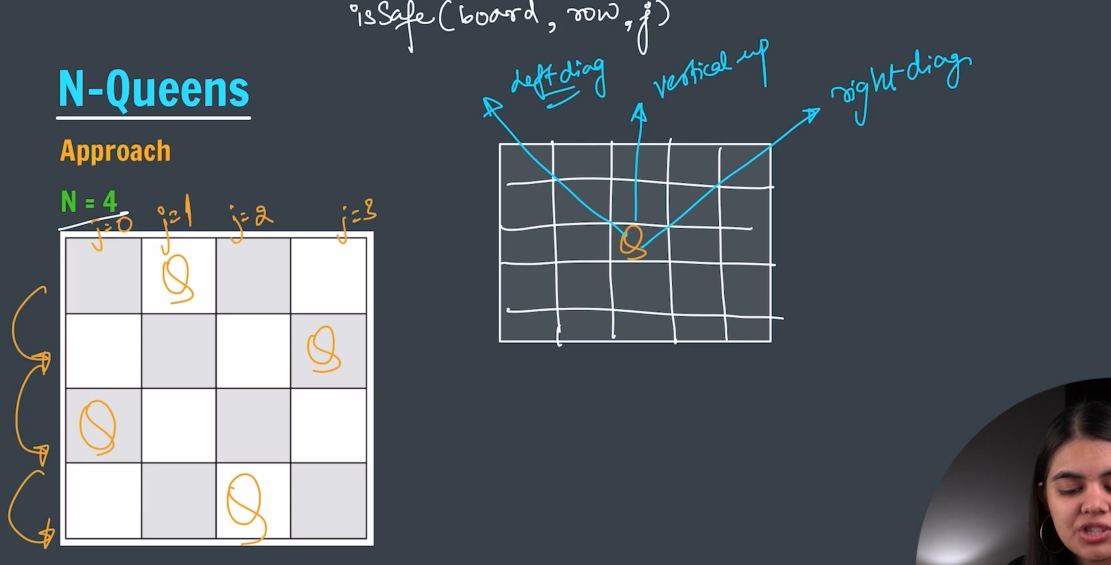 isSafe(board, row, j)
N-Queens
Approach
N = 4
j=0 j=1 j=2 j=3
Q
Q
Q
Q
left diag
vertical up
right diag
Q